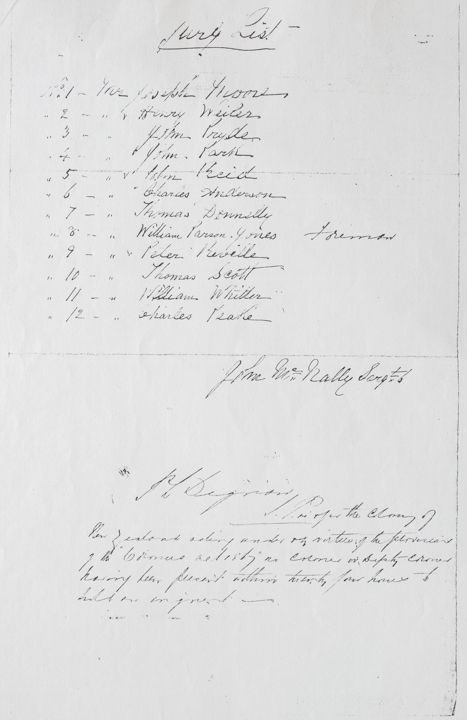 Jury List
No. 1 - Mr Joseph Moore
" 2 - " Henry Weiler
" 3 - " John Pryde
" 4 - " John Park
" 5 - " John Reid
" 6 - " Charles Anderson
" 7 - " Thomas Donnelly
" 8 - " William Parson Jones Foreman
" 9 - " Peter Neville
" 10 - " Thomas Scott
" 11 - " William Whitter
" 12 - " Charles
John McNally Sergt
J.P. of the Colony of
New Zealand acting under & by virtue of the provisions
of the Coroners Act 1867 no Coroner or Deputy Coroner
having been present within twenty four hours to
hold an inquest